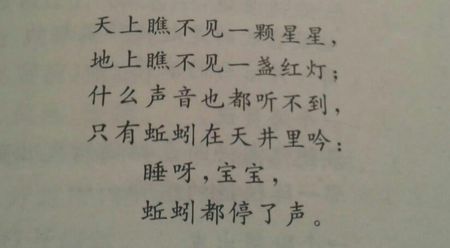 天上瞧不见一颗星星，
地上瞧不见一盏红灯；
什么声音也都听不到，
只有蚯蚓在天井里吟：
睡呀，宝宝，
蚯蚓都停了声。